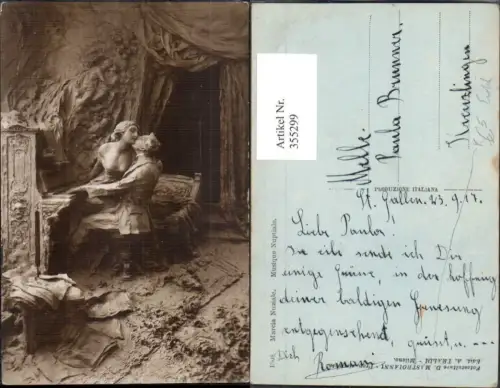 Artikel Nr.
355299
Mlle.
Paula Brunner.
Kreuzlingen
PRODUZIONE ITALIANA
St. Gallen. 23.9.17.
Liebe Paula!
In eile sende ich Dir
einige Grüsse, in der hoffnung
deiner baldigen Genesung
entgegensehend, grüsst u. ---
Dich
Marcia Nuziale. Musique Nuptiale.
Fotoscultura D. MASTROIANNI
Milano.